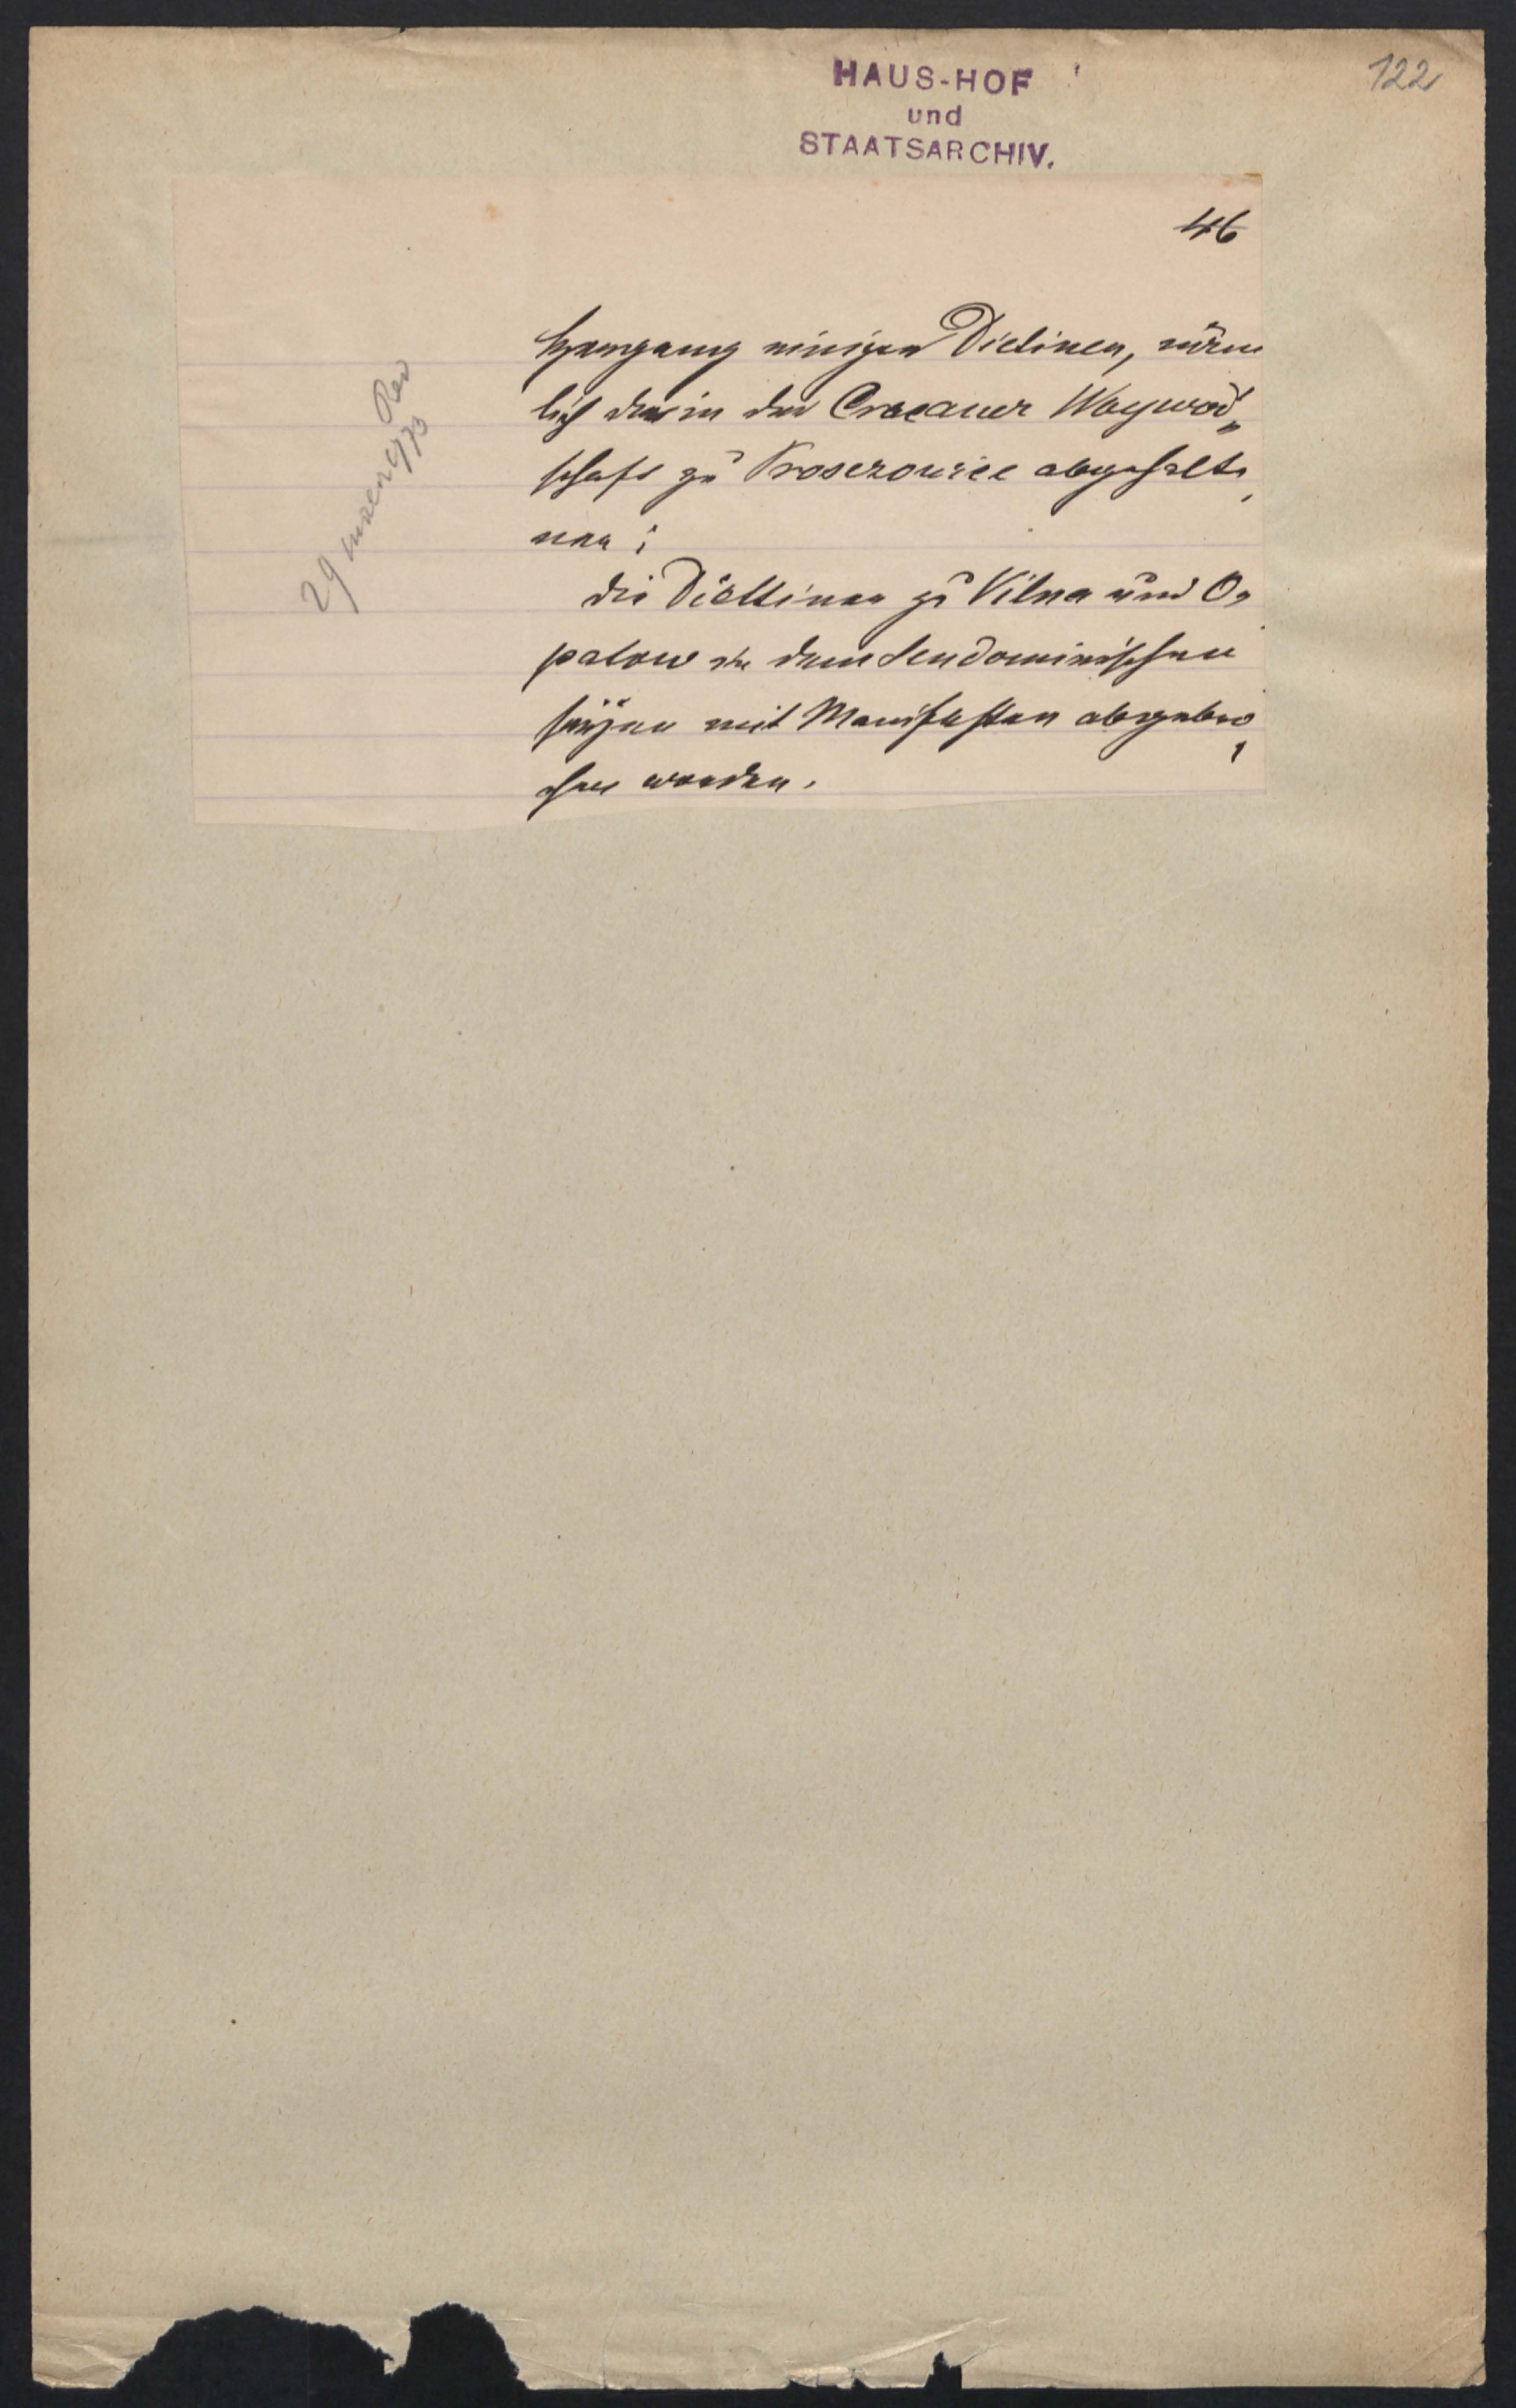 HAUS-HOF
und
STAATSARCHIV.
122
46
Hergang einiger Dietinen, näm
lich der in der Cracauer Waywod„
schaft zu Proszowice abgehalte,
nen;
die Diättinen zu Vilna und O„
patow in dem Sendomirischen
seÿen mit Manifesten abgebro,
chen worden.
29